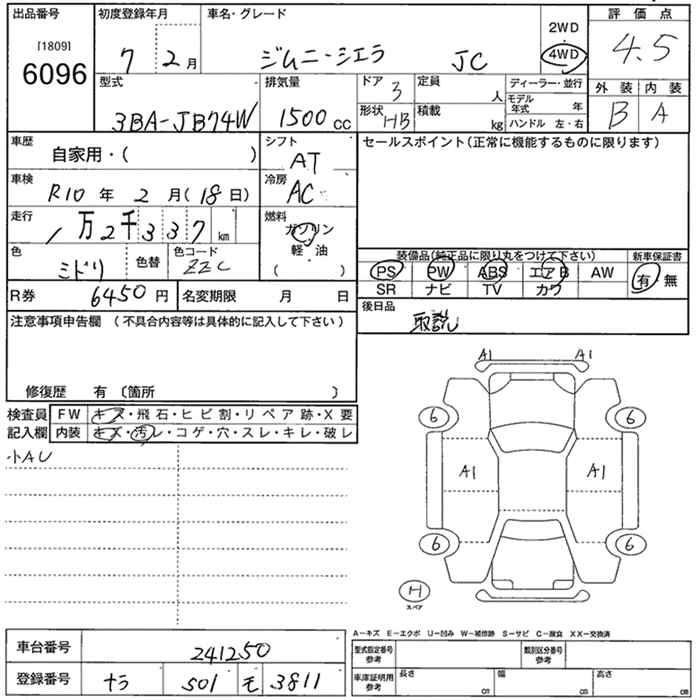 出品番号 初度登録年月 車名・グレード 2WD 評価点
[1809] 6096 7 2月 ジムニーシエラ JC 4WD 4.5
型式 排気量 ドア 3 定員 人 ディーラー・並行 外装 内装
3BA-JB74W 1500cc 形状 HB 積載 kg モデル年式 年 B A
ハンドル 左・右
車歴 自家用・( ) シフト AT セールスポイント(正常に機能するものに限ります)
車検 R10年 2月(18日) 冷房 AC
走行 1万2千337km 燃料 ガソリン
軽・油
( )
色 ミドリ 色替 色コード ZZC 装備品(純正品に限り丸をつけて下さい) 新車保証書
PS PW ABS エアB AW 有・無
R券 6450円 名変期限 月 日 SR ナビ TV カワ
後日品 取説
注意事項申告欄(不具合内容等は具体的に記入して下さい)
修復歴 有 〔箇所 〕
A1 A1
検査員 FW キズ・飛石・ヒビ割・リペア跡・X要
記入欄 内装 キズ・汚レ・コゲ・穴・スレ・キレ・破レ
小AU
6 6
A1 A1
6 6
H
スペア
A-キズ E-エクボ U-凹み W-補修跡 S-サビ C-腐食 XX-交換済
車台番号 241250 型式指定番号 参考 類別区分番号 参考
登録番号 ナラ 501 モ 3811 車庫証明用 参考 長さ cm 幅 cm 高さ cm